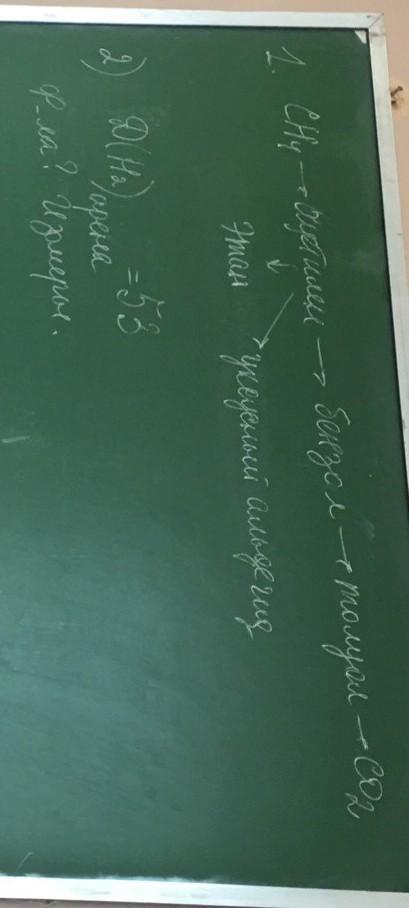 1. CH₄ → ацетилен → бензол → толуол → CO₂
↓ ↘
Этан уксусный альдегид
2) Д(H₂) арена = 53
Ф-ла? Изомеры.